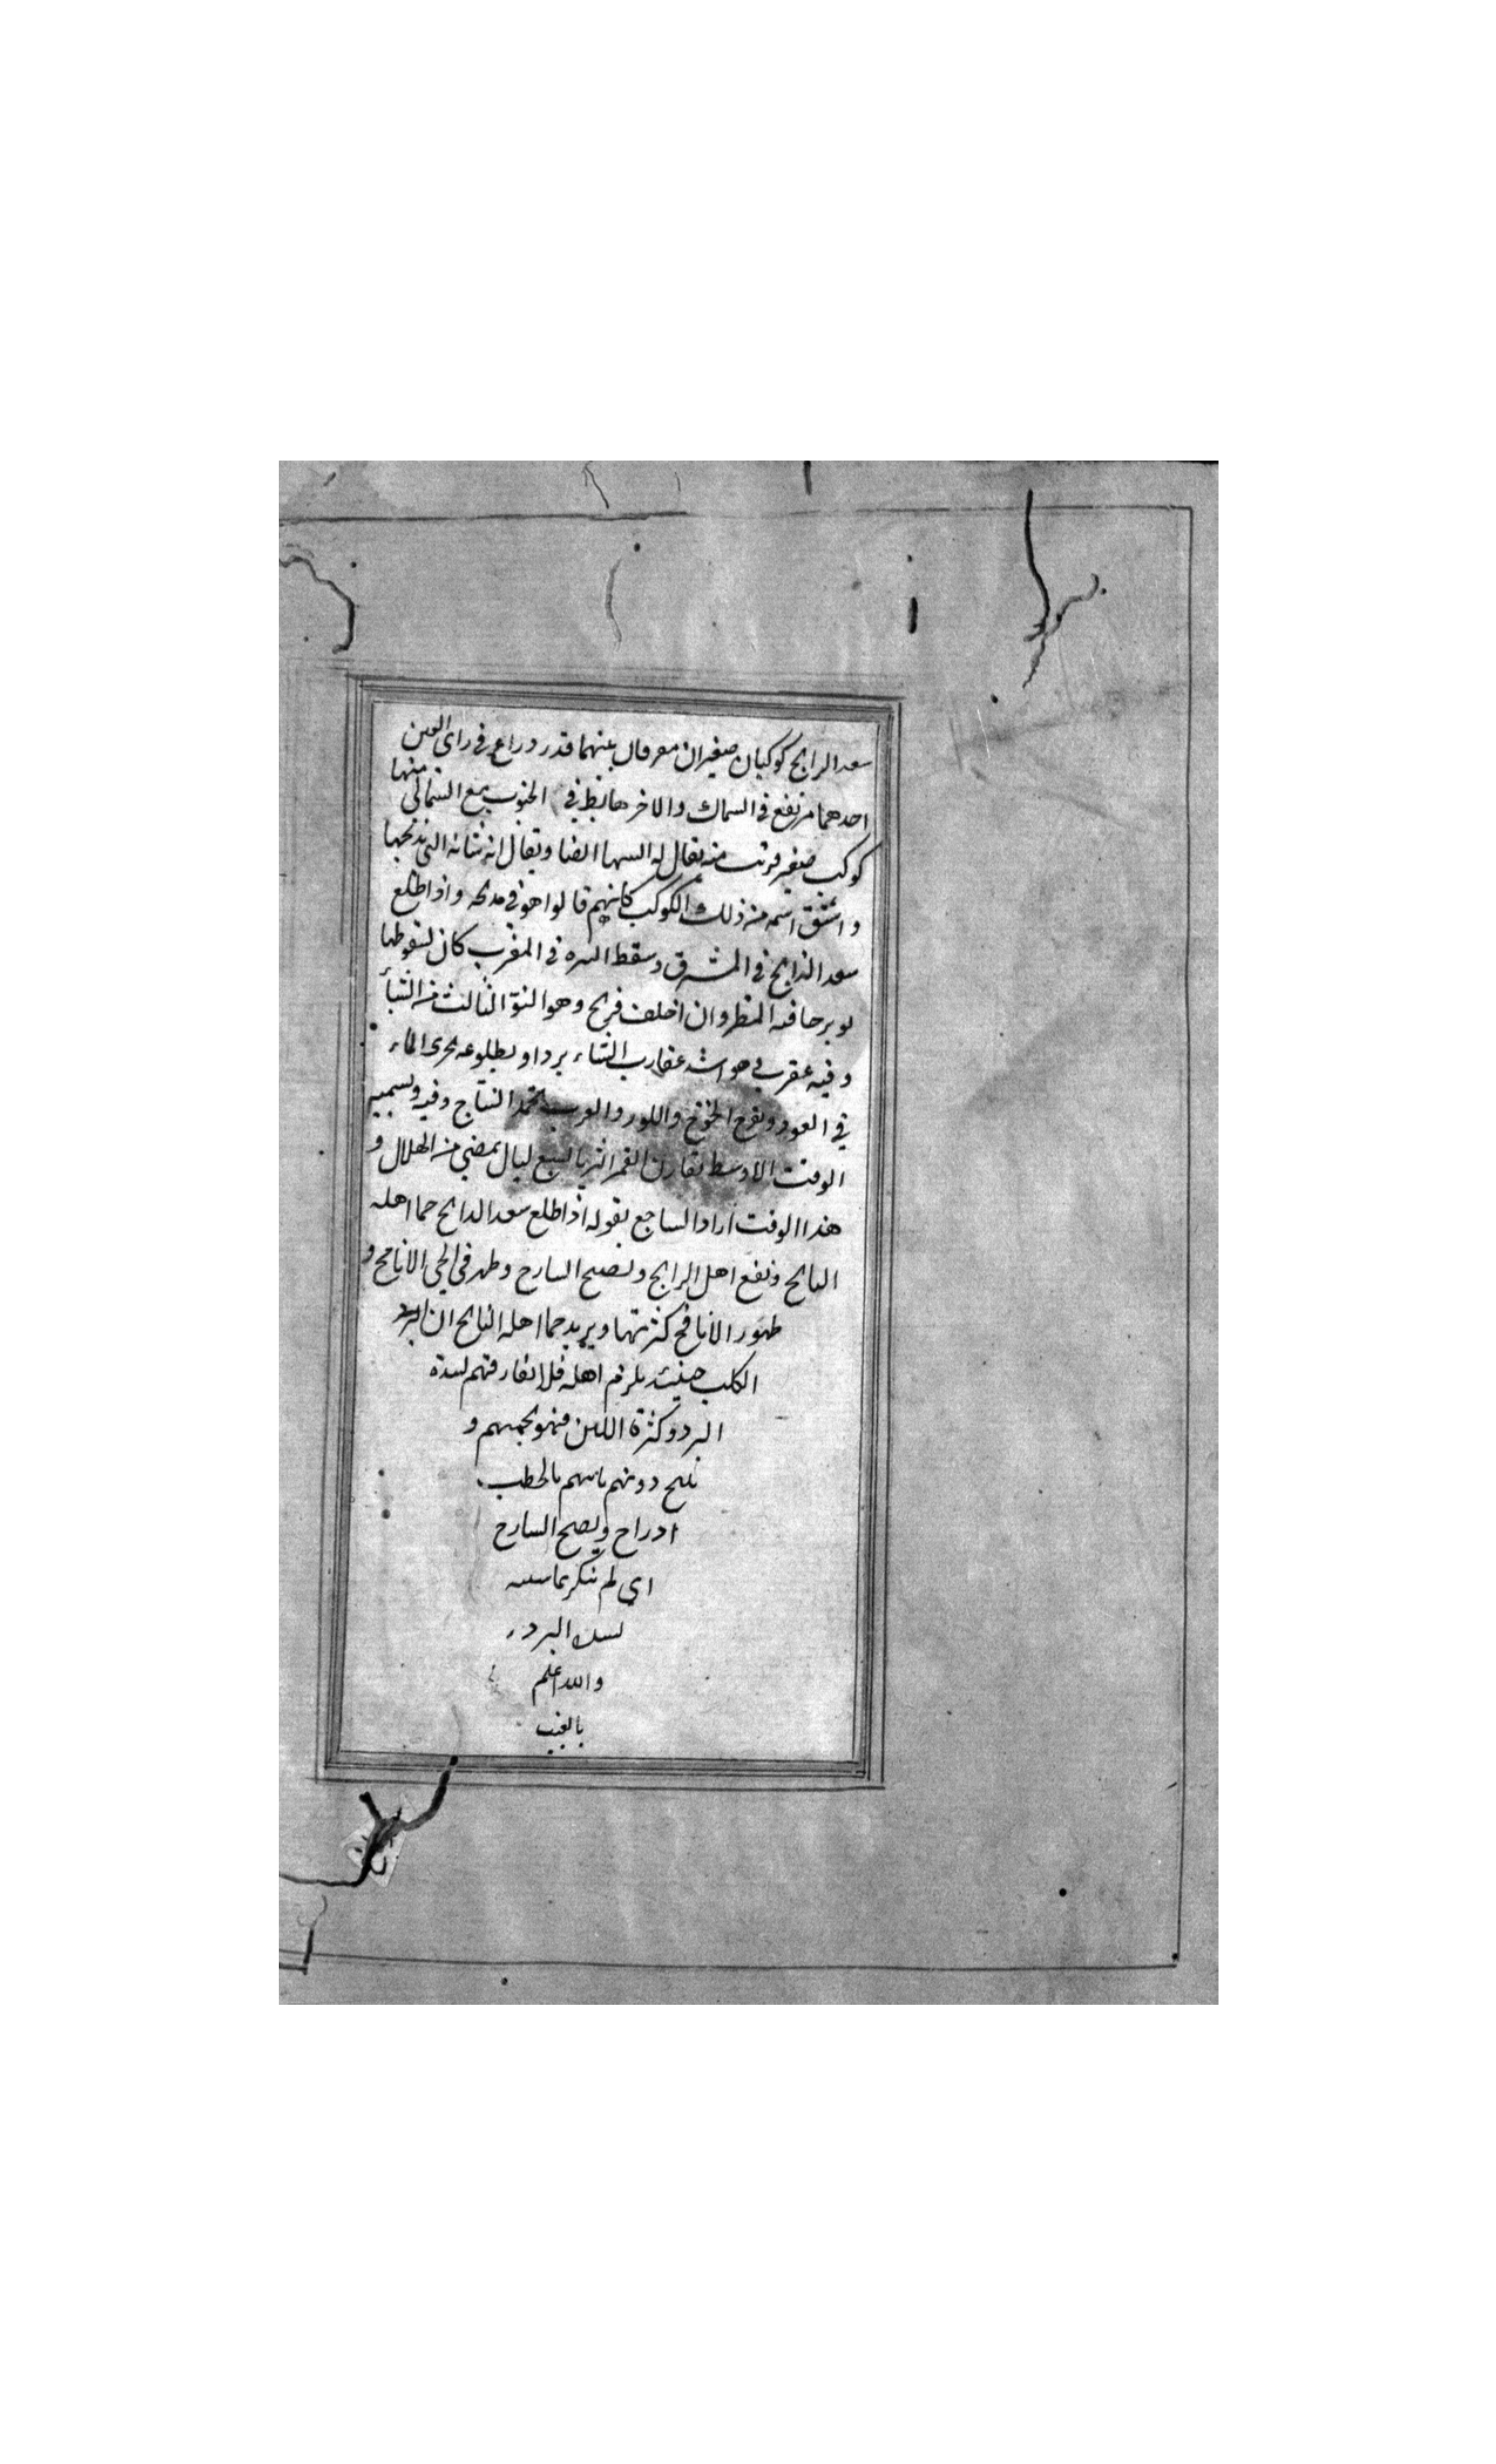 سعد الرابح كوكبان صغيران معرفان بينهما قدر دراع في راى العين
احدهما مرتفع في السماك والاخر هابط في الجنوب مع الشمالى منها
كوكب صغير قريب منه يقال له السها ايضا ويقال انه شانه التي يذبحها
و اشتق اسمه من ذلك الكوكب كانهم قالوا هو في مدبحه واذا طلع
سعد الذابح في المشرق وسقط النثره في المغرب كان لسقوطها
فيه المطر وان اخلف فريح وهو النوّ الثالث من الشتاء
وفيه عقرب عقارب الشتاء بردا و بطلوعه يجرى الماء
في العود ويفرخ الخوخ واللوز والعرب النتاج وفيه ويسميه
الوقت الاوسط يقارن القمر الثريا لسبع ليال يمضي من الهلال و
هذا الوقت اراد الساجع بقوله اذا طلع سعد الدابح حما اهله
النابح ونفع اهل الرابح وتصبح السارح وظهر في الحي الانافح و
ظهور الانافح كثرتها ويريد حما اهله النابح ان
الكلب حينئذ يلزم اهله فلا يفارقهم لشدة
البرد وكثرة اللبن فهو يحميهم و
ينبح دونهم بالحطب
ادراح ويصبح السارح
اي لم يبكر بماشيته
البرد
والله اعلم
بالغيب